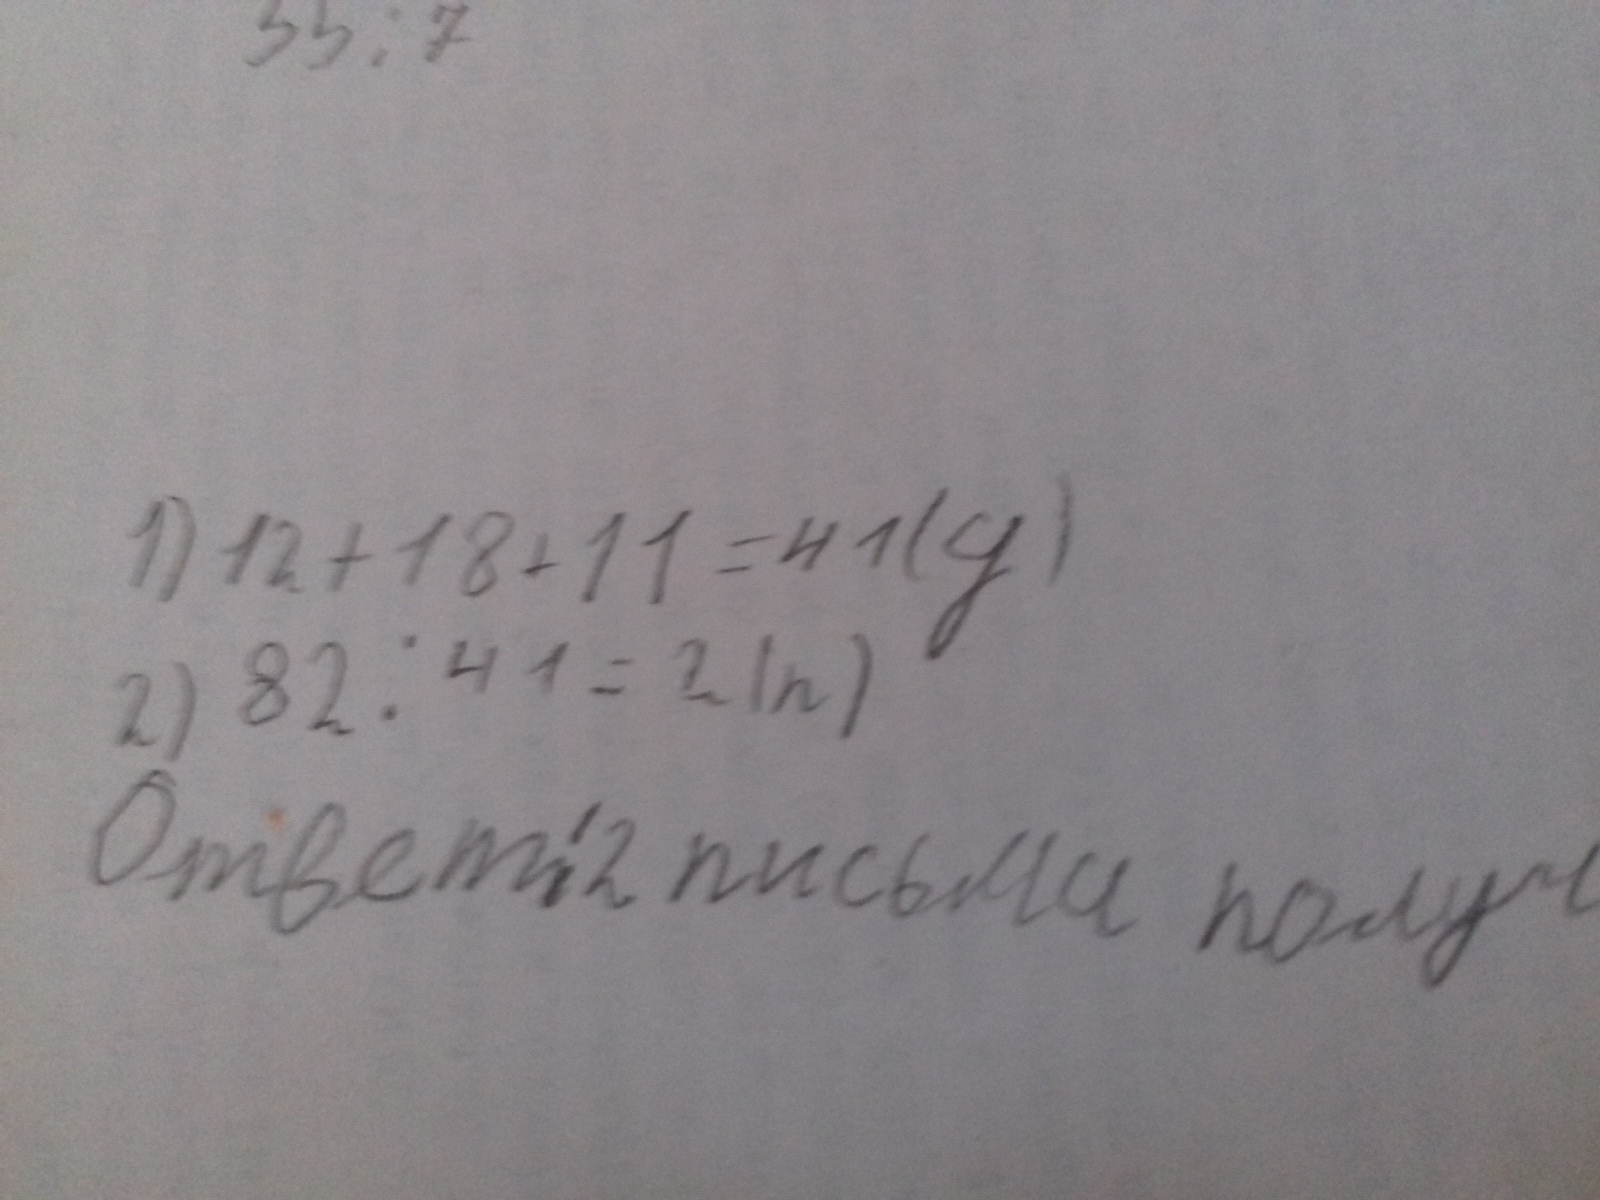 35:7
1) 12+18+11=41(у)
2) 82:41=2(п)
Ответ: 2 письма получ